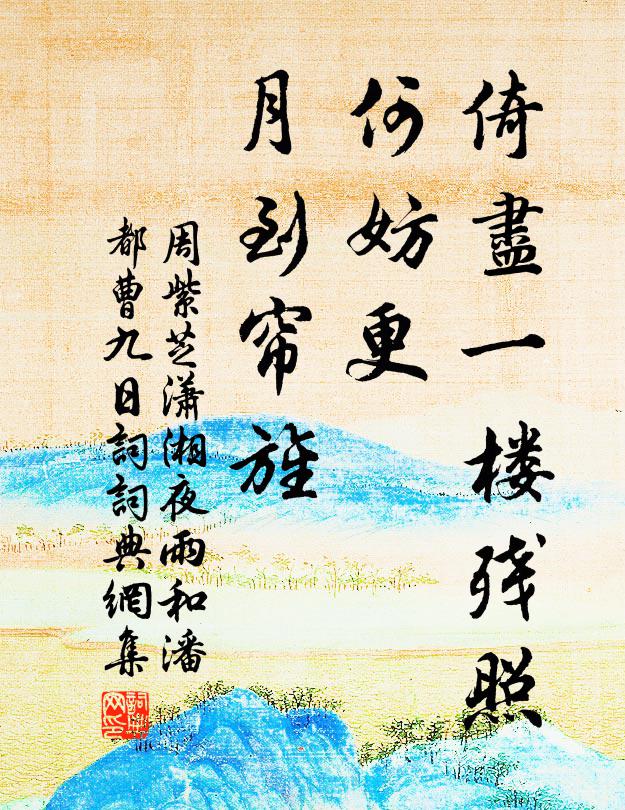 倚盡一楼残照
何妨更
月到帘旌
周紫芝潇湘夜雨和潘
都曹九日詞詞典網集